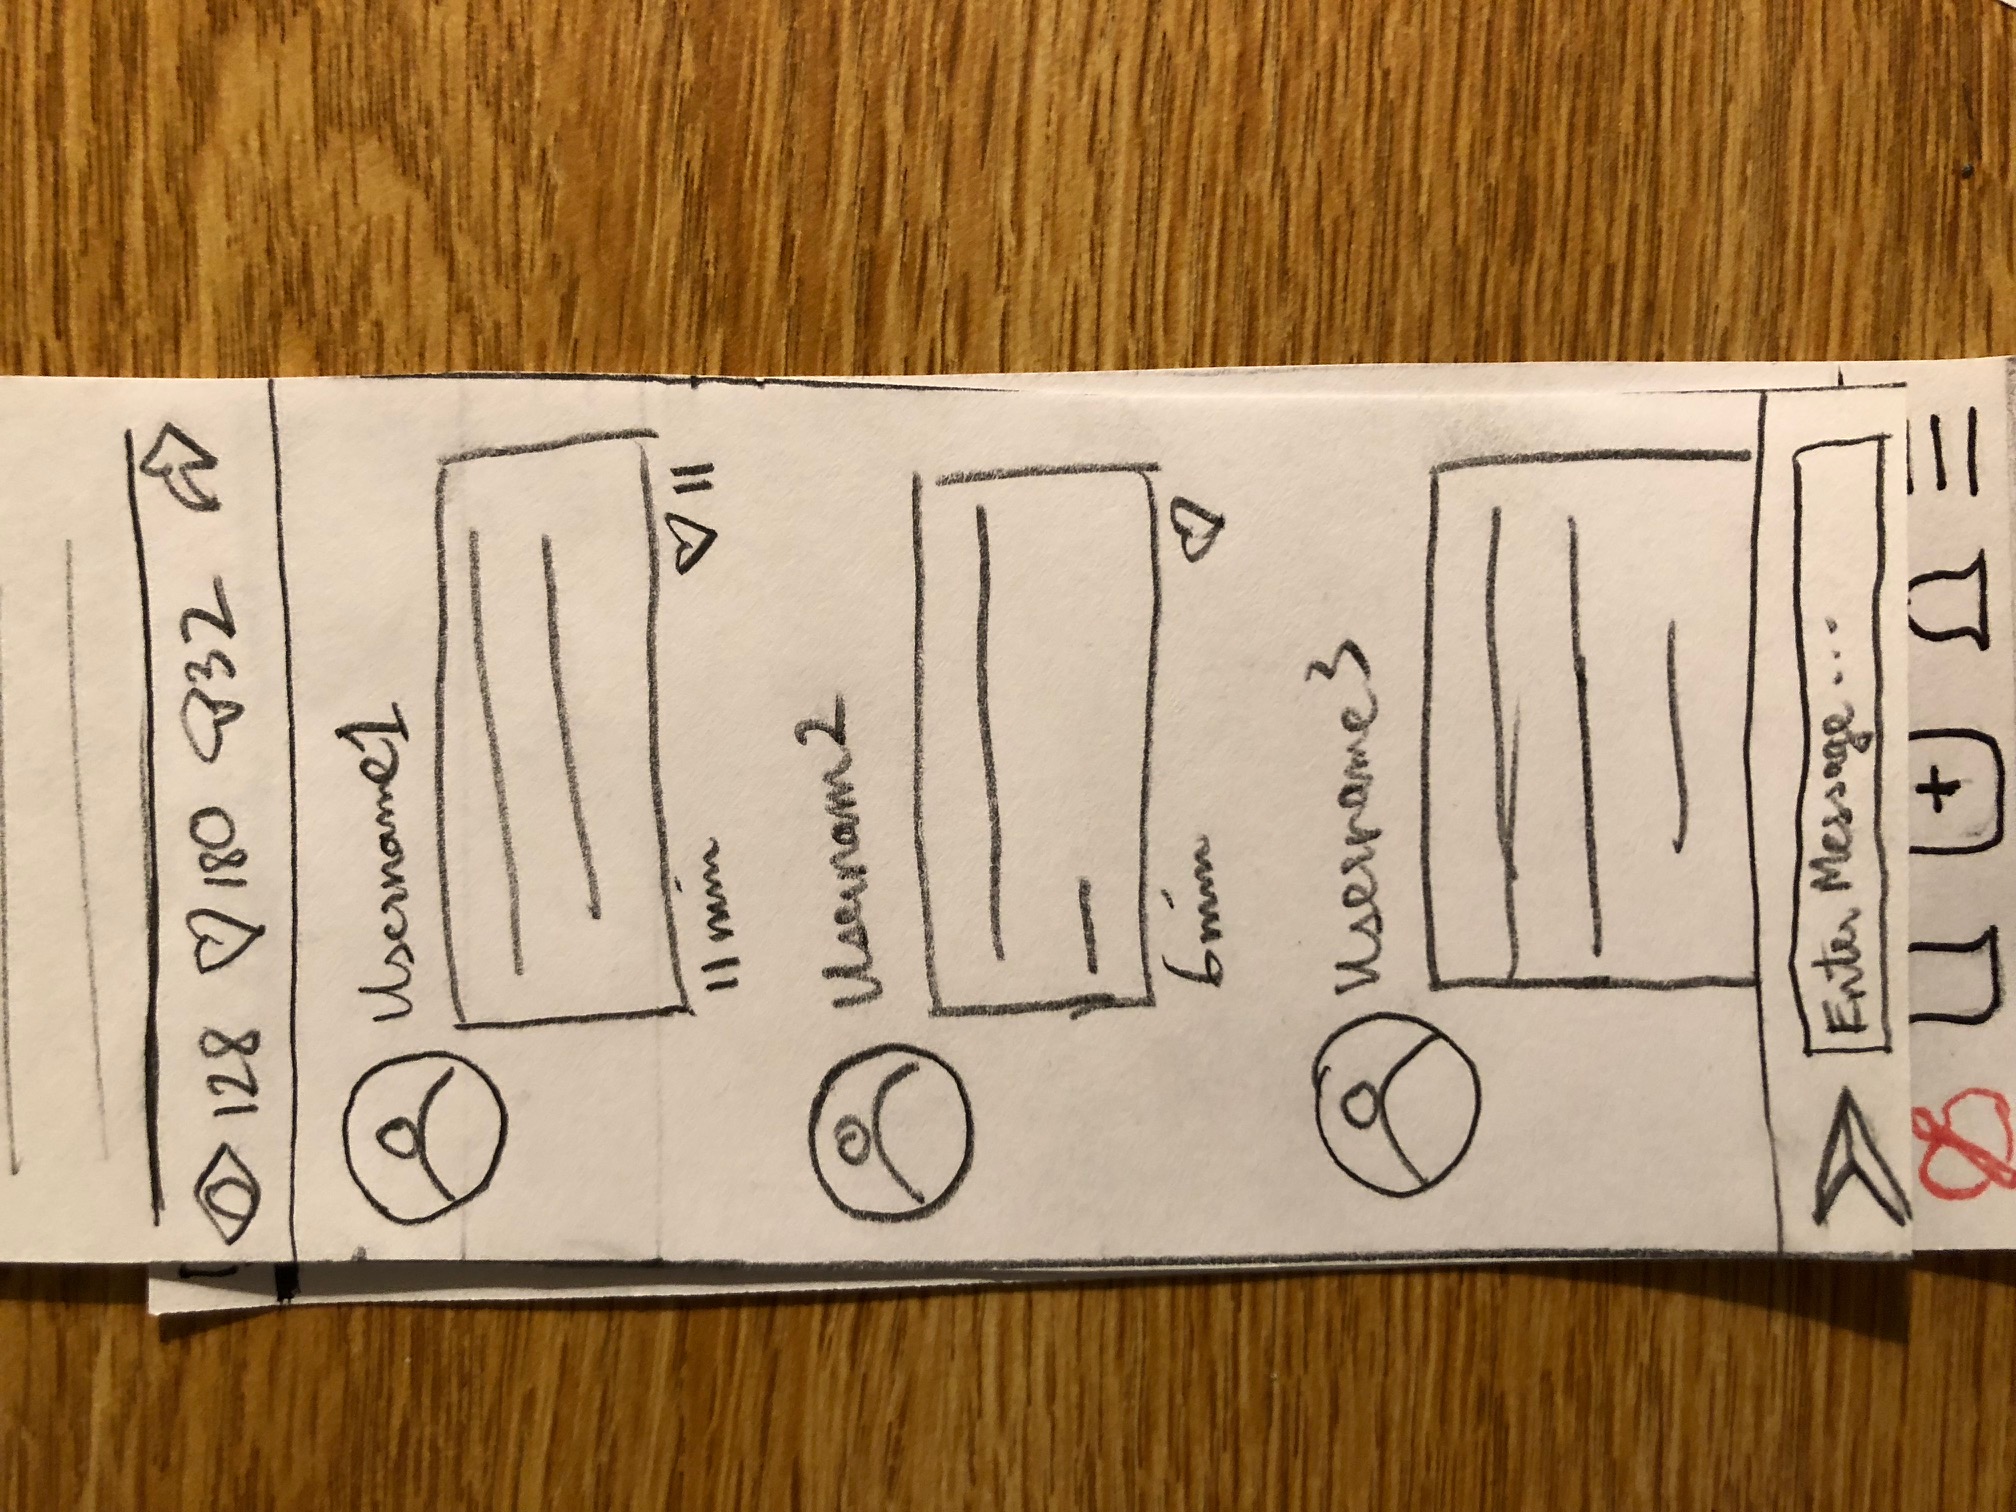 128 180 32
Username1
11 min 11
Usernam2
6min
Username3
Enter Message....